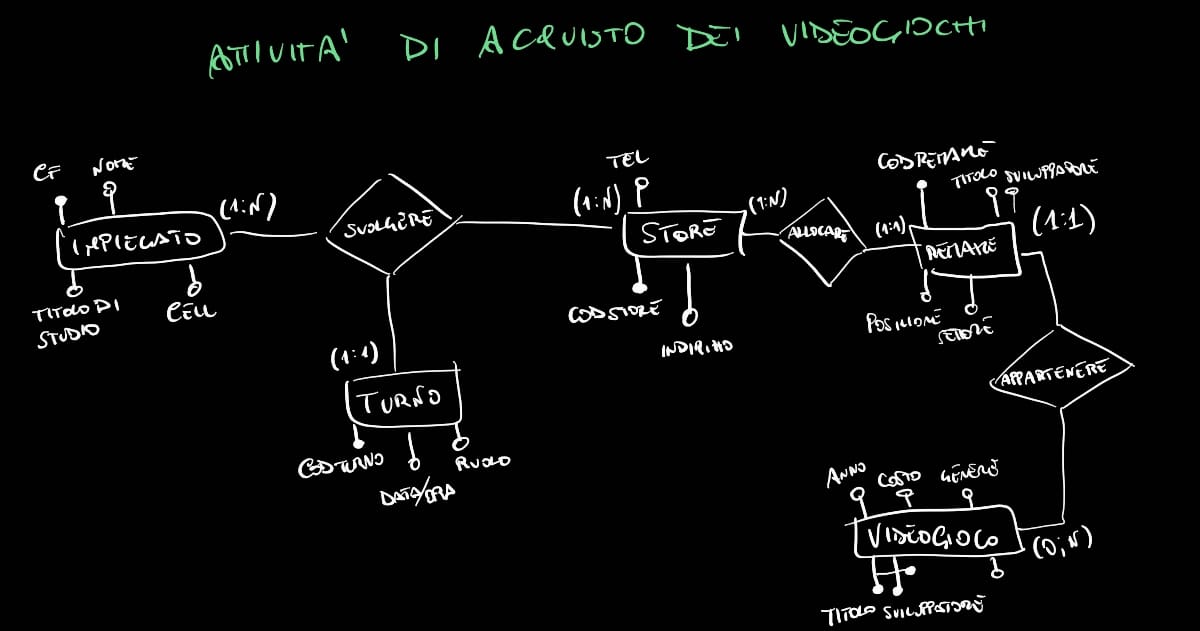 ATTIVITA' DI ACQUISTO DEI VIDEOGIOCHI
CF NOME
(1:N)
IMPIEGATO
TITOLO DI
STUDIO
CELL
SVOLGERE
(1:1)
TURNO
CODTURNO
DATA/ORA
RUOLO
TEL
(1:N)
STORE
(1:N)
CODSTORE
INDIRIZZO
ALLOCARE
(1:1)
CODREPARE
TITOLO SVILUPPATORE
(1:1)
REPARE
POSIZIONE
SETTORE
APPARTENERE
ANNO COSTO GENERE
VIDEOGIOCO
(0;N)
TITOLO SVILUPPATORE